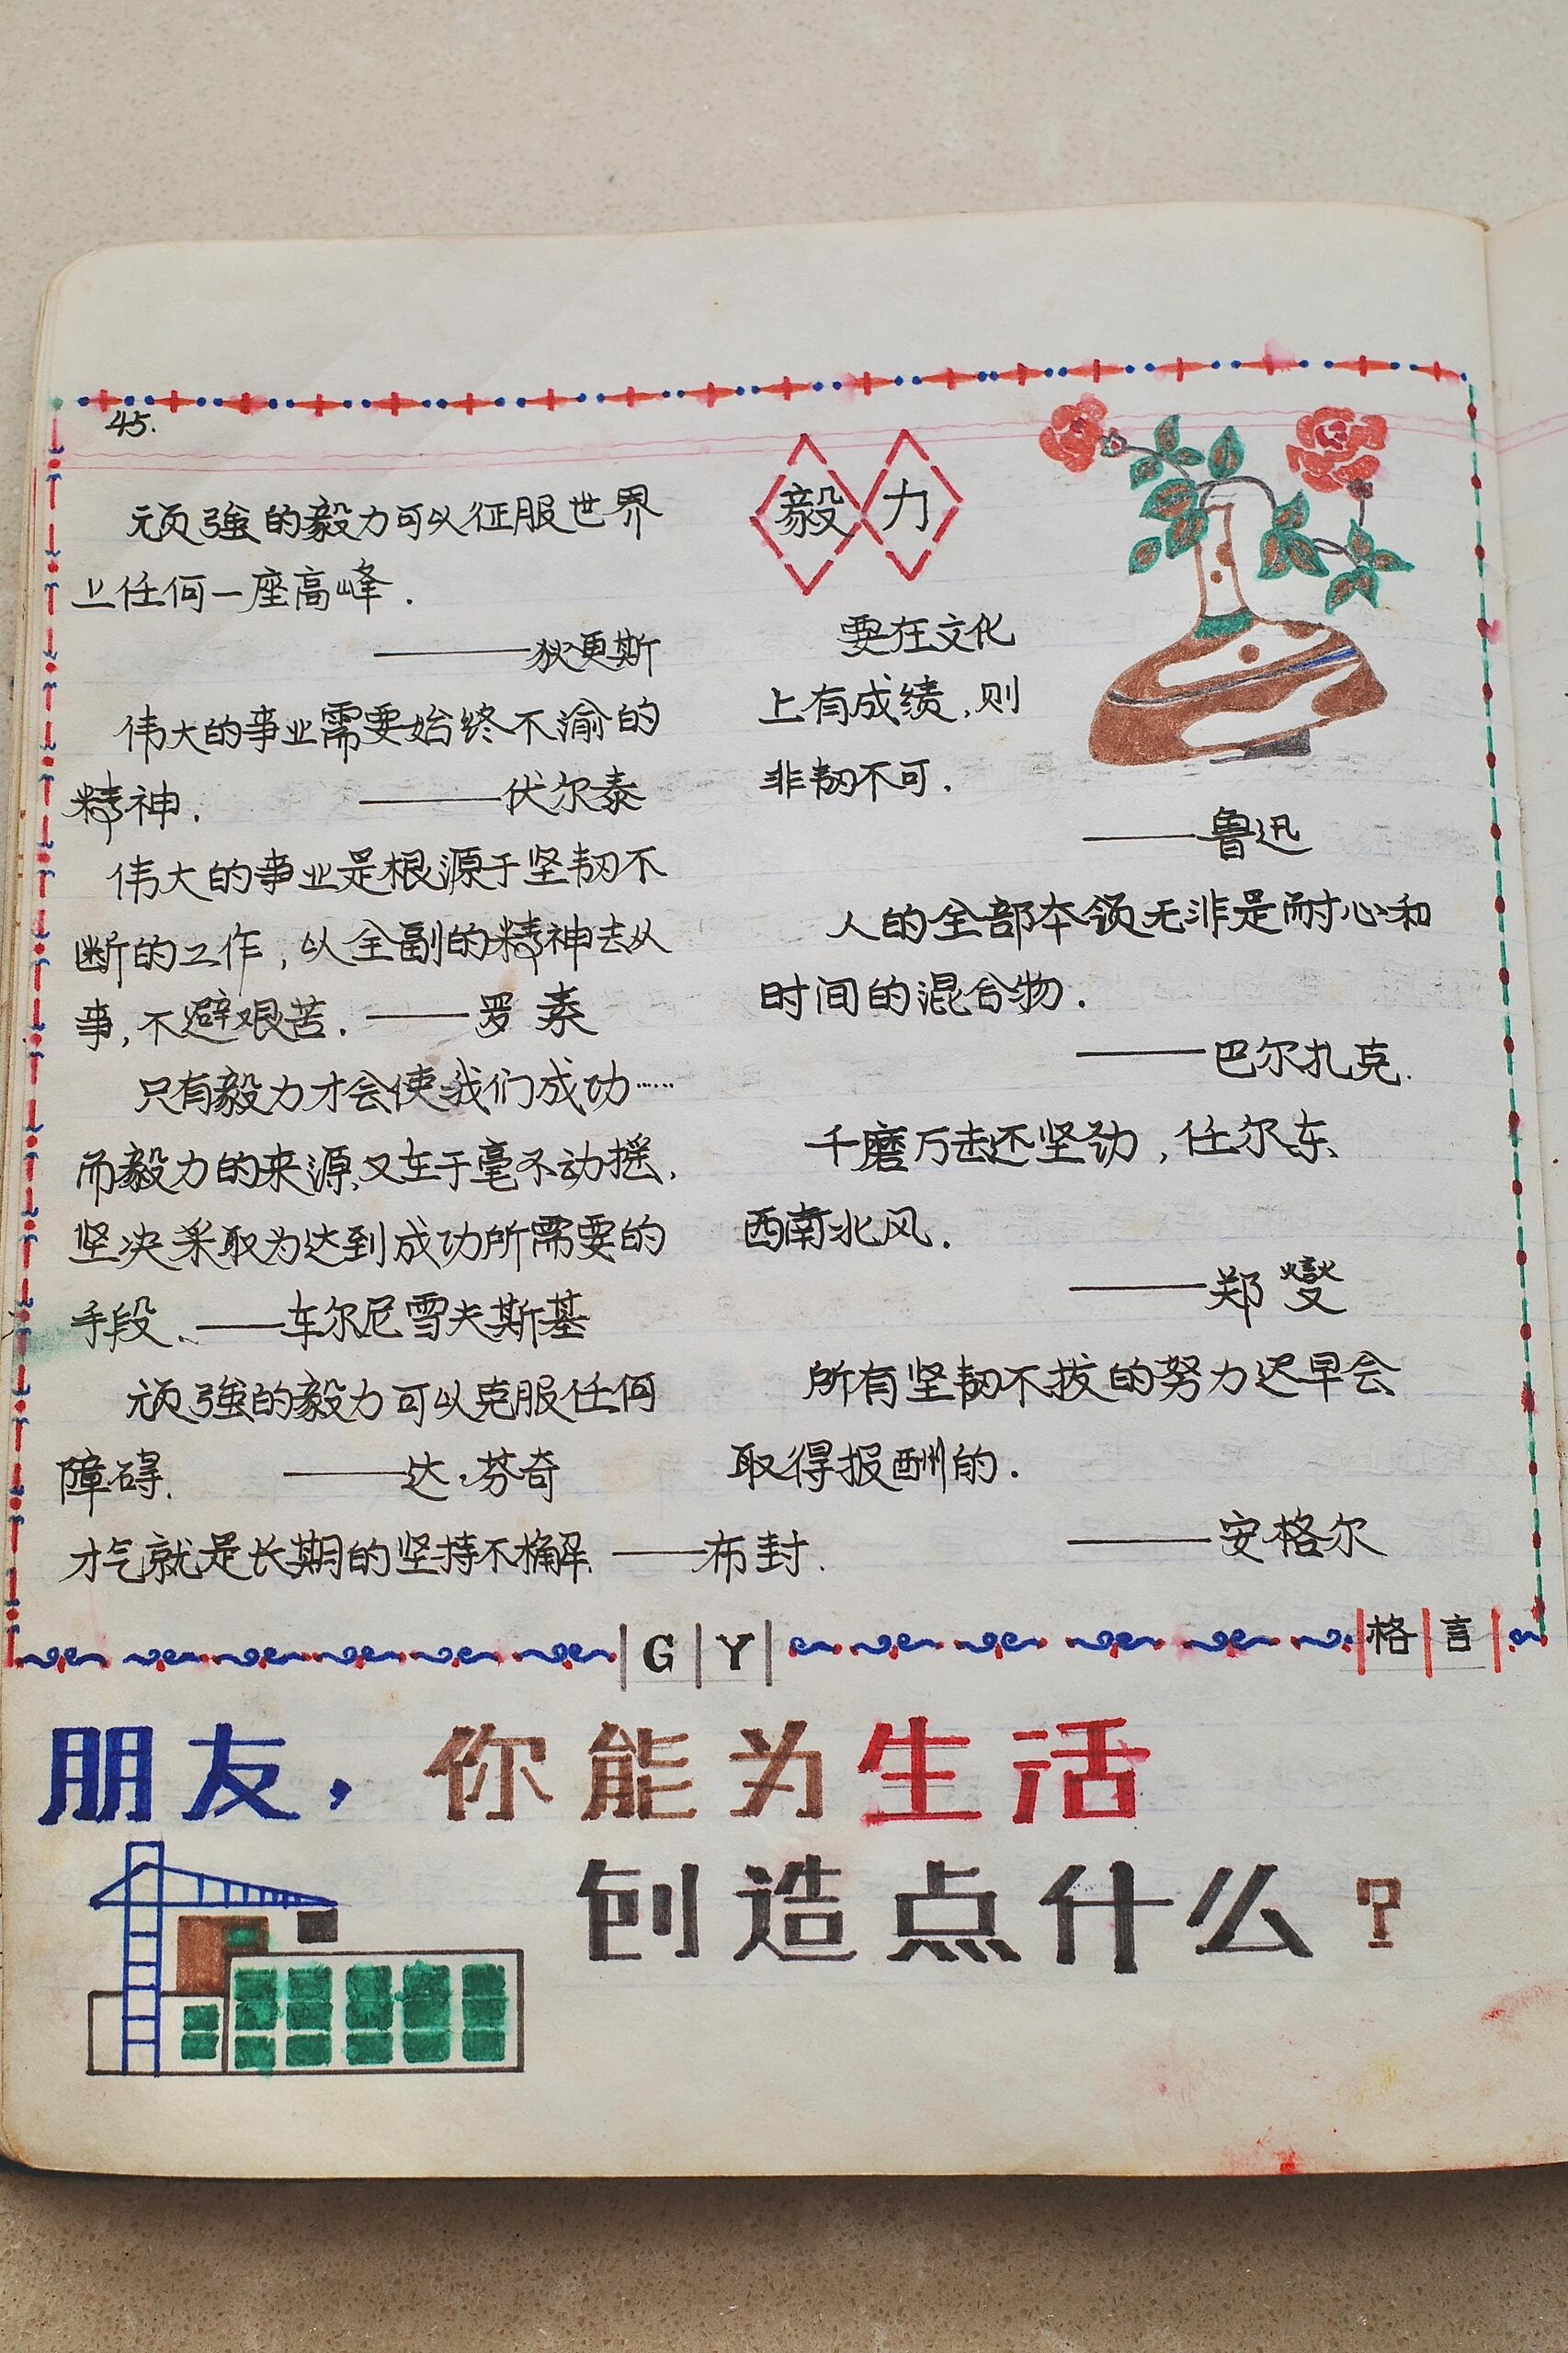 45.
顽強的毅力可以征服世界
上任何一座高峰.
——狄更斯
伟大的事业需要始终不渝的
精神. ——伏尔泰
伟大的事业是根源于坚韧不
断的工作,以全副的精神去从
事,不避艰苦. ——罗素
只有毅力才会使我们成功……
而毅力的来源,又在于毫不动摇,
坚决采取为达到成功所需要的
手段、——车尔尼雪夫斯基
顽強的毅力可以克服任何
障碍. ——达·芬奇
才气就是长期的坚持不懈 ——布封.
毅力
要在文化
上有成绩,则
非韧不可.
——鲁迅
人的全部本领无非是耐心和
时间的混合物.
——巴尔扎克.
千磨万击还坚劲,任尔东、
西南北风.
——郑燮
所有坚韧不拔的努力迟早会
取得报酬的.
——安格尔
GY 格言
朋友,你能为生活
创造点什么?